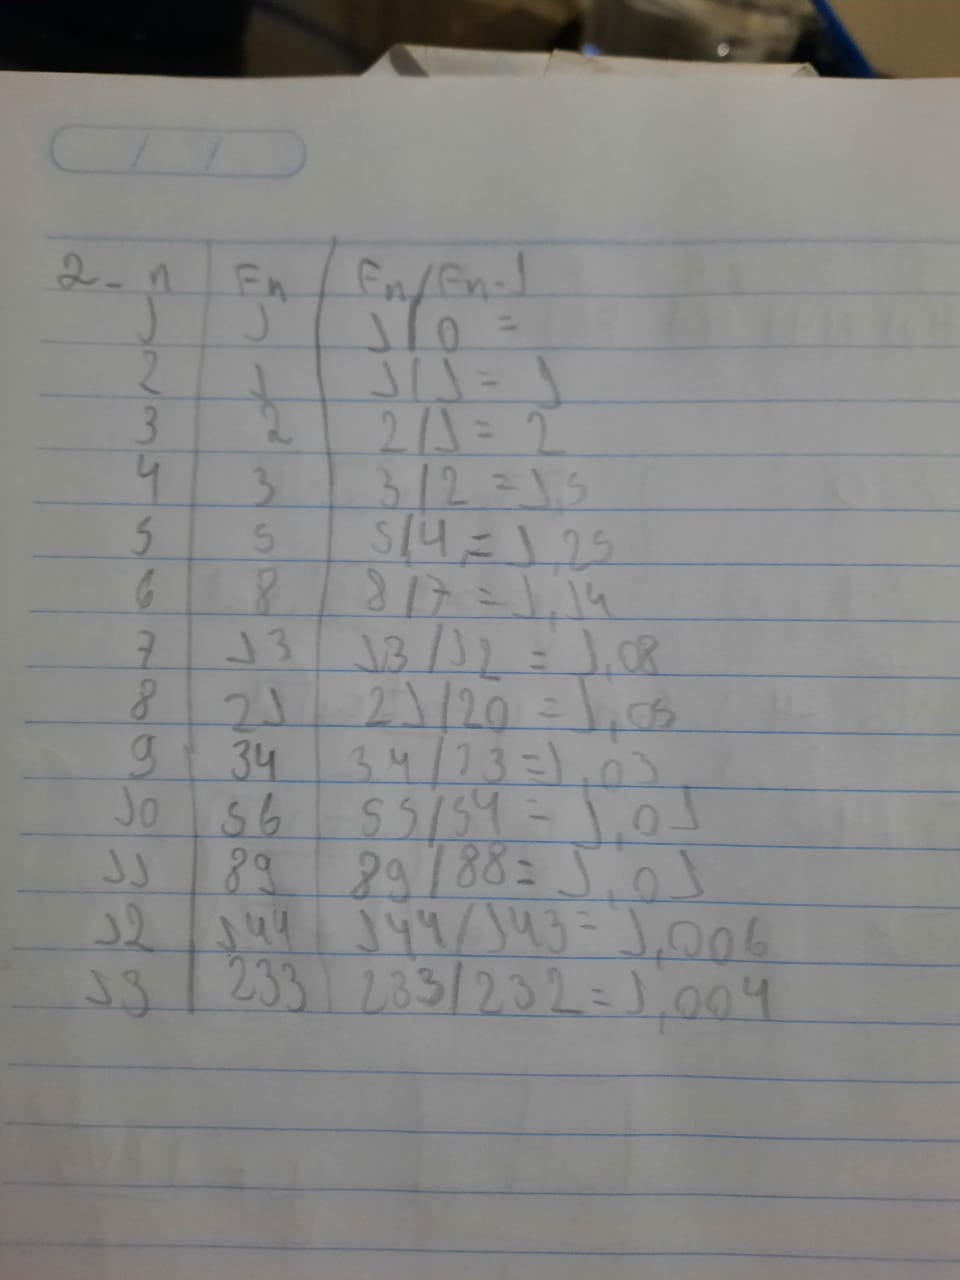 / /
2- n Fn Fn/Fn-1
1 1 1/0 =
2 1 1/1 = 1
3 2 2/1 = 2
4 3 3/2 = 1,5
5 5 5/4 = 1,25
6 8 8/7 = 1,14
7 13 13/12 = 1,08
8 21 21/20 = 1,05
9 34 34/33 = 1,03
10 56 55/54 = 1,01
11 89 89/88 = 1,01
12 144 144/143 = 1,006
13 233 233/232 = 1,004